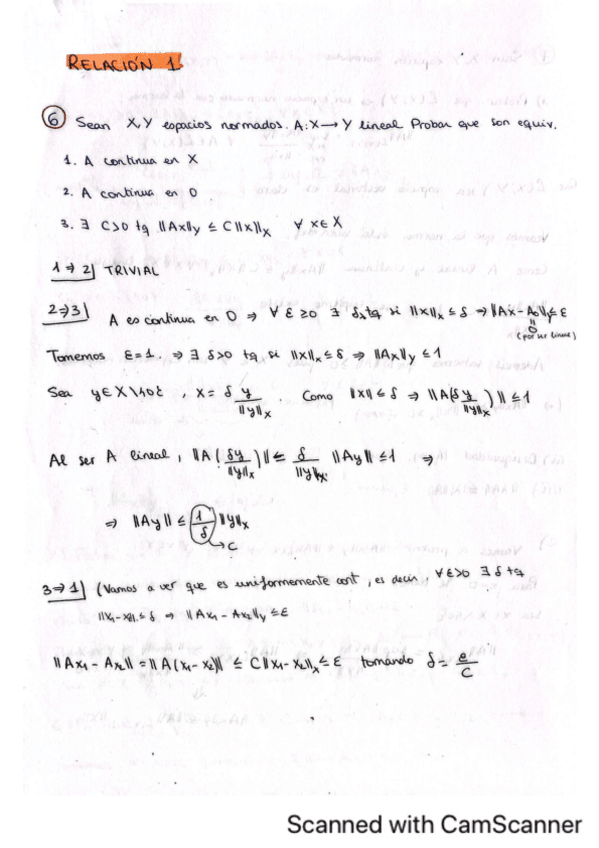 RELACIÓN 1
⑥ Sean X,Y espacios normados. A: X → Y lineal. Probar que son equiv.
1. A continua en X
2. A continua en 0
3. ∃ C>0 tq ||Ax||y ≤ C||x||x ∀ x∈X
1⇒2] TRIVIAL
2⇒3] A es continua en 0 ⇒ ∀ ε≥0 ∃ δ tq si ||x||x ≤ δ ⇒ ||Ax - A0||y ≤ ε
0
(por ser lineal)
Tomemos ε=1. ⇒ ∃ δ>0 tq si ||x||x ≤ δ ⇒ ||Ax||y ≤ 1
Sea y∈X\{0}, x = δ y/||y||x. Como ||x|| ≤ δ ⇒ ||A(δy/||y||x)|| ≤ 1
Al ser A lineal, ||A(δy/||y||x)|| = δ/||y||x ||Ay|| ≤ 1 ⇒
⇒ ||Ay|| ≤ (1/δ) ||y||x
→ C
3⇒1] (Vamos a ver que es uniformemente cont, es decir, ∀ ε>0 ∃ δ tq
||x1-x2|| ≤ δ ⇒ ||Ax1 - Ax2||y ≤ ε
||Ax1 - Ax2|| = ||A(x1-x2)|| ≤ C||x1-x2||x ≤ ε tomando δ = e/C
Scanned with CamScanner